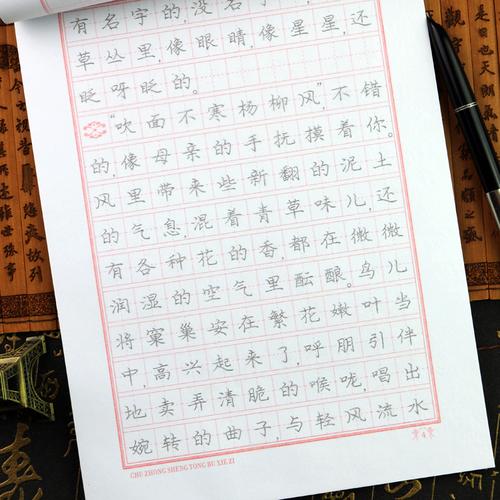 有名字的,没名字
草丛里,像眼睛,像星星,还
眨呀眨的。
“吹面不寒杨柳风”,不错
的,像母亲的手抚摸着你。
风里带来些新翻的泥土
的气息,混着青草味儿,还
有各种花的香,都在微微
润湿的空气里酝酿。鸟儿
将窠巢安在繁花嫩叶当
中,高兴起来了,呼朋引伴
地卖弄清脆的喉咙,唱出
婉转的曲子,与轻风流水
CHU ZHONG SHENG TONG BU XIE ZI
4